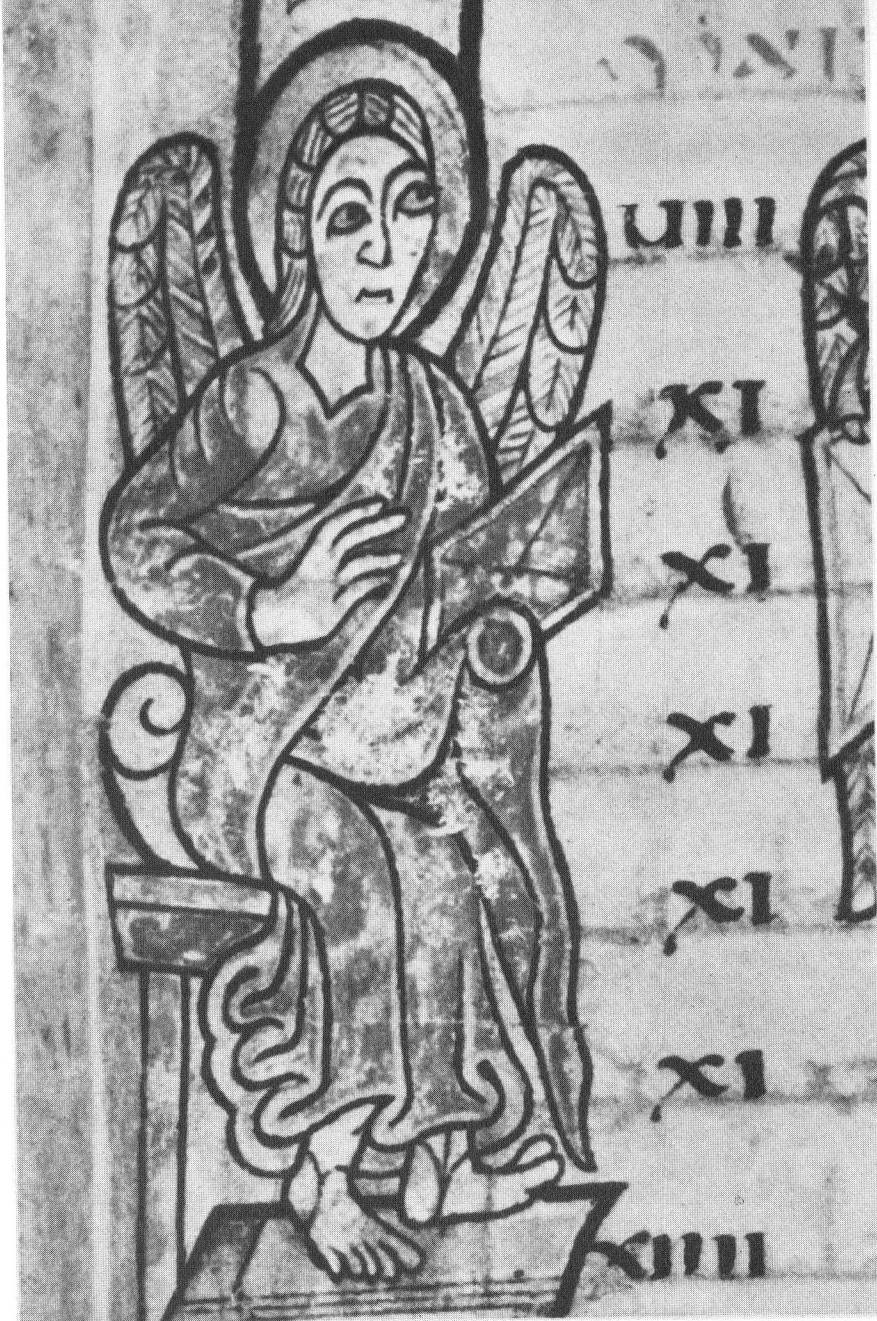 uiii
xi
xi
xi
xi
xi
xiiii